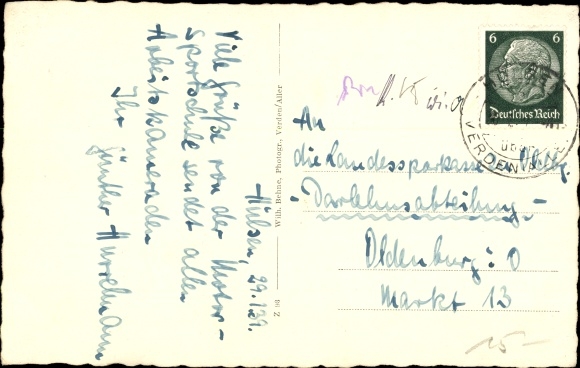 Hülsen, 29.1.39.
Viele Grüße von der Motor-
sportschule sendet allen
Arbeitskameraden
Ihr Günther
Z 98 Wilh. Behne, Photogr., Verden/Aller
6 6
Deutsches Reich
VERDEN
An
die Landessparkasse Oldbg.
- Darlehnsabteilung -
Oldenburg i. O
Markt 13
15-